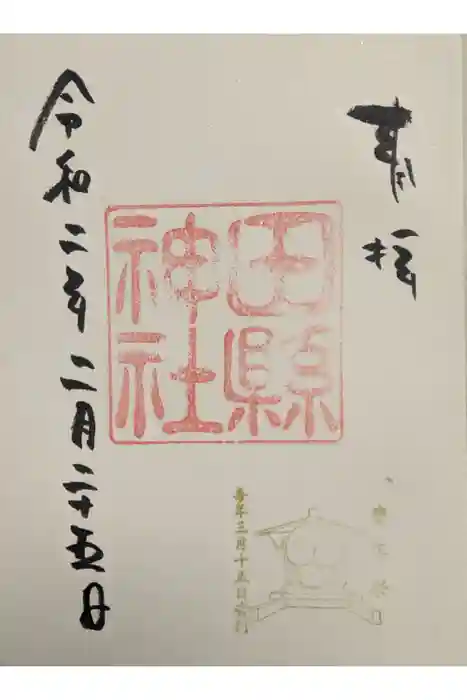 奉拝
田縣
神社
豊年祭
毎年三月十五日斎行
令和二年二月二十五日